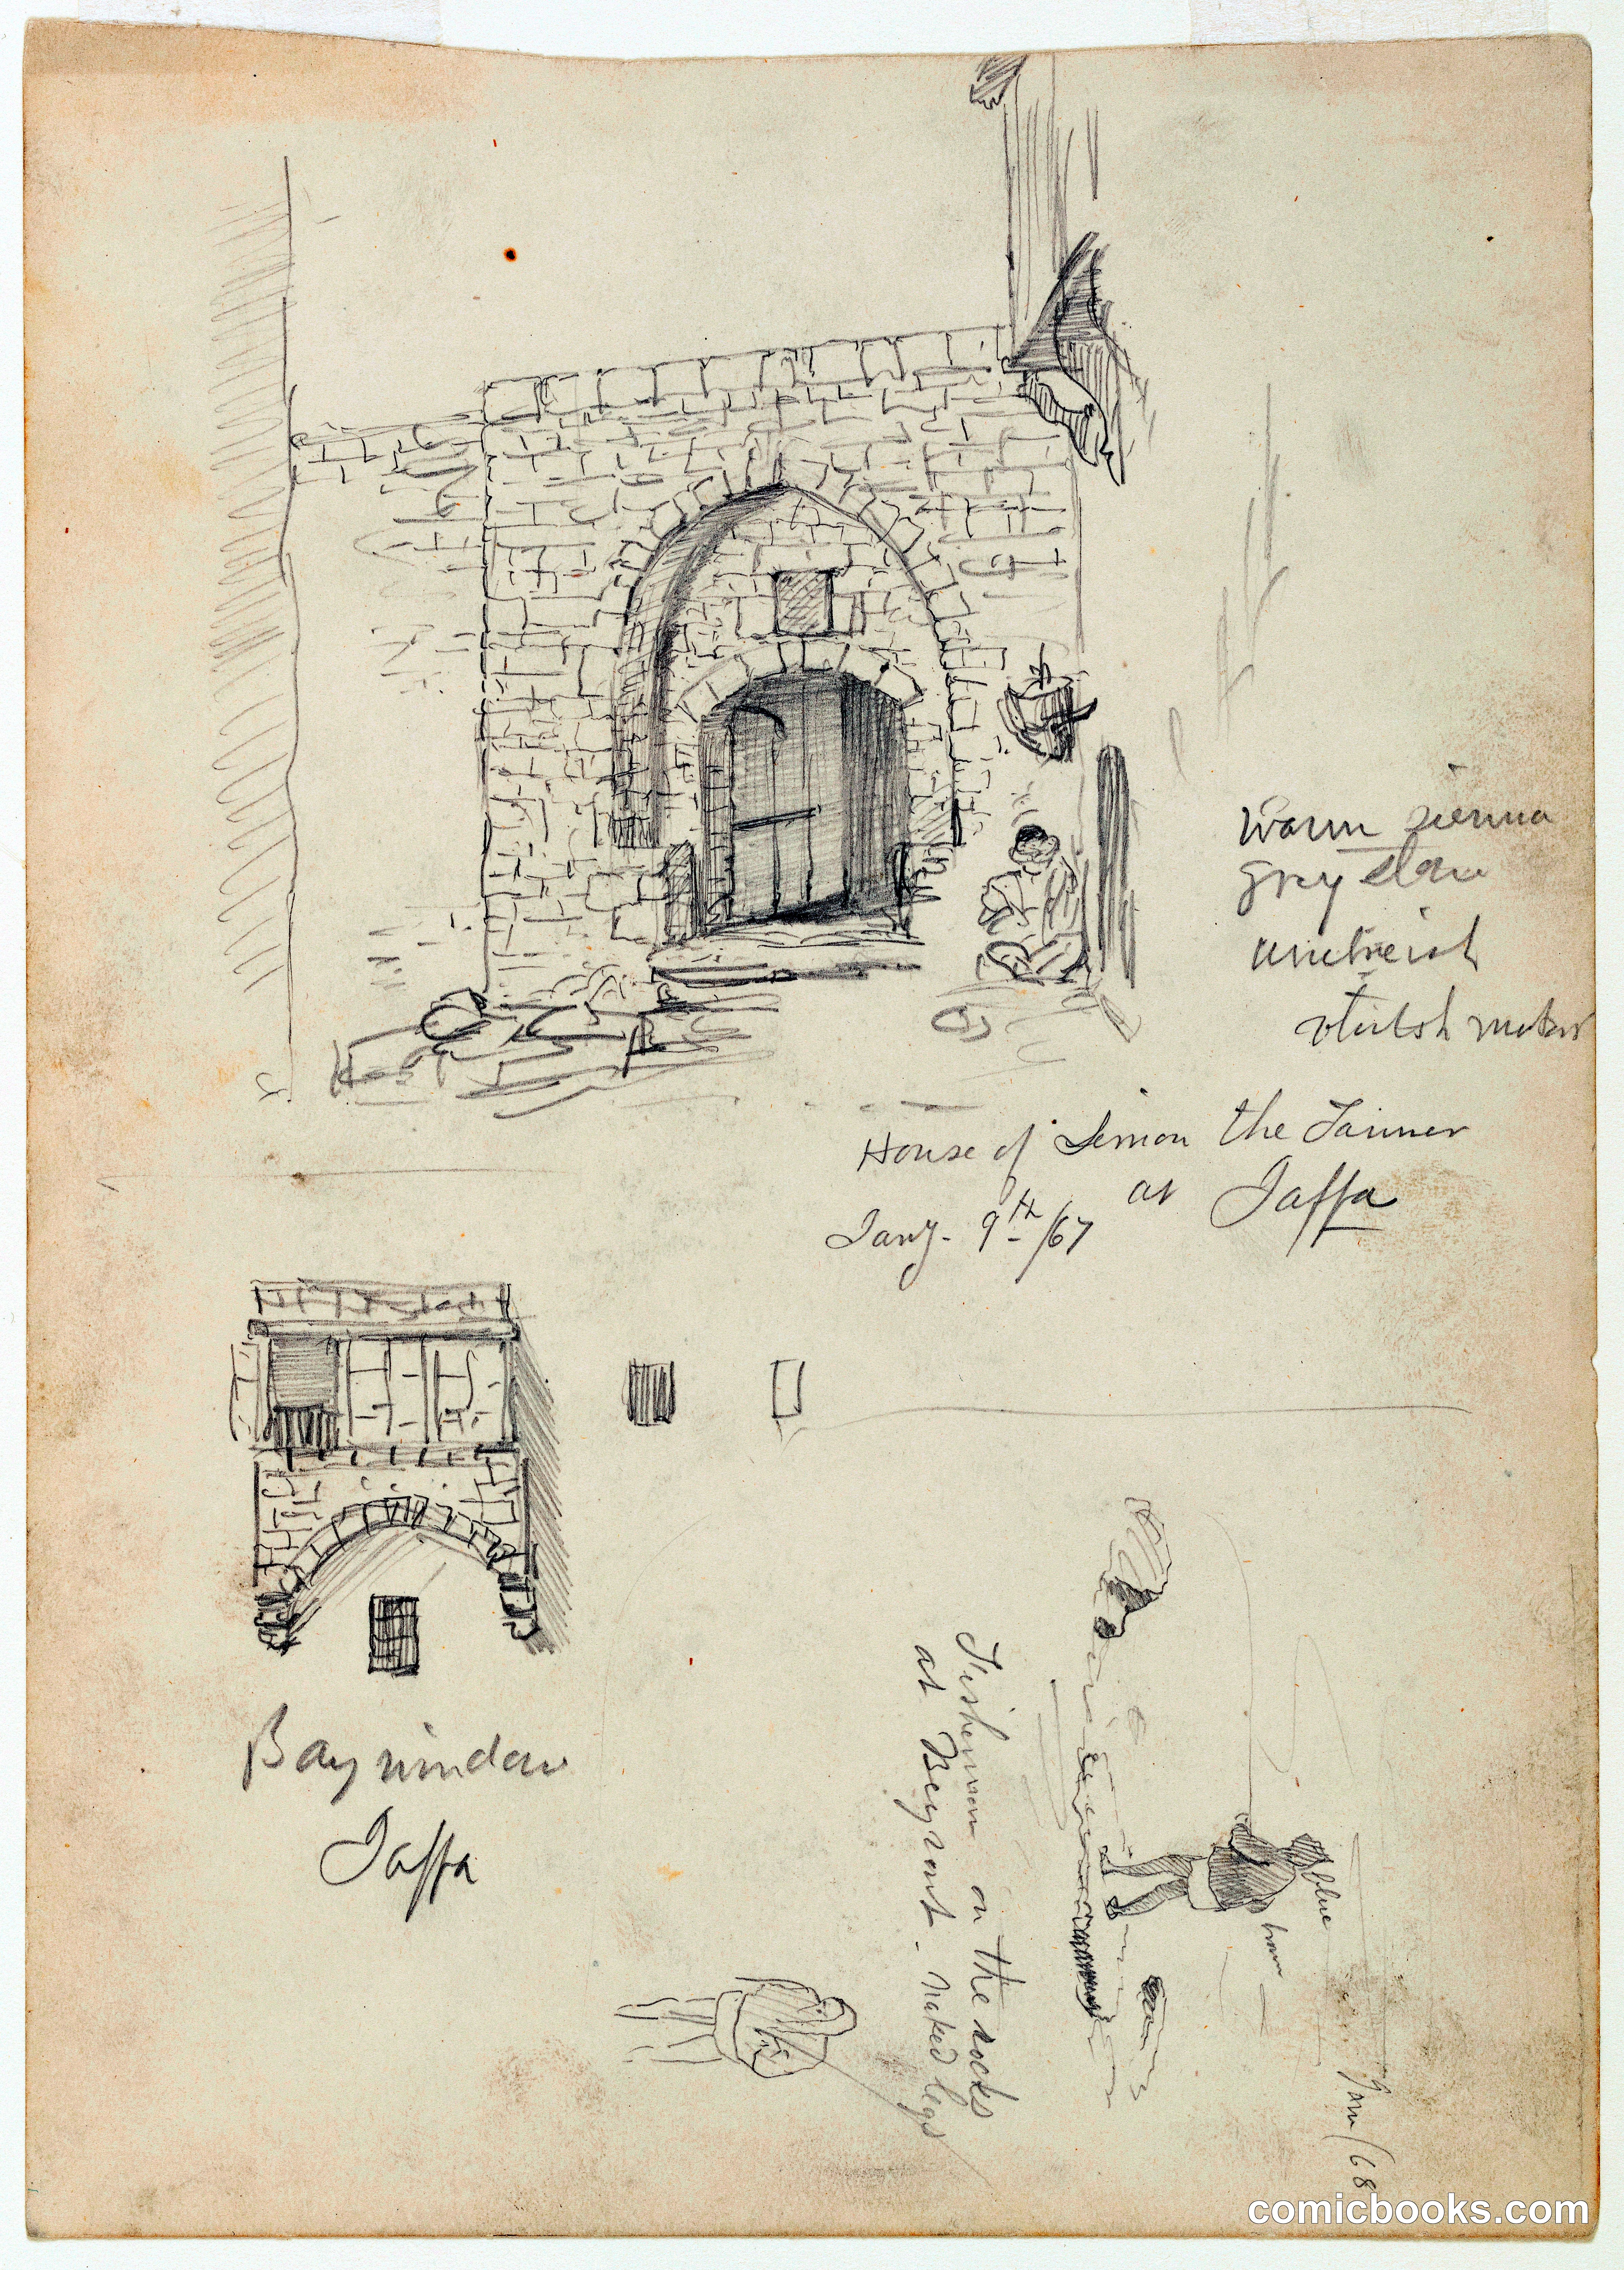 warm sienna
grey
House of Simon the Tanner
at Jaffa
Jany. 9th/67
Bay window
Jaffa
Fishermen on the rocks
at Beyrout - naked legs
blue
brown
Jan/68
comicbooks.com